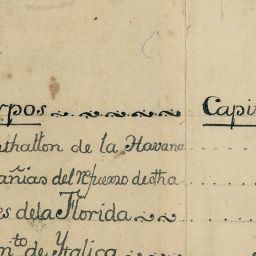 rpos Capi
thallon de la Havana
añias del Refuerzo de dha
es de la Florida
nto de Ytalica